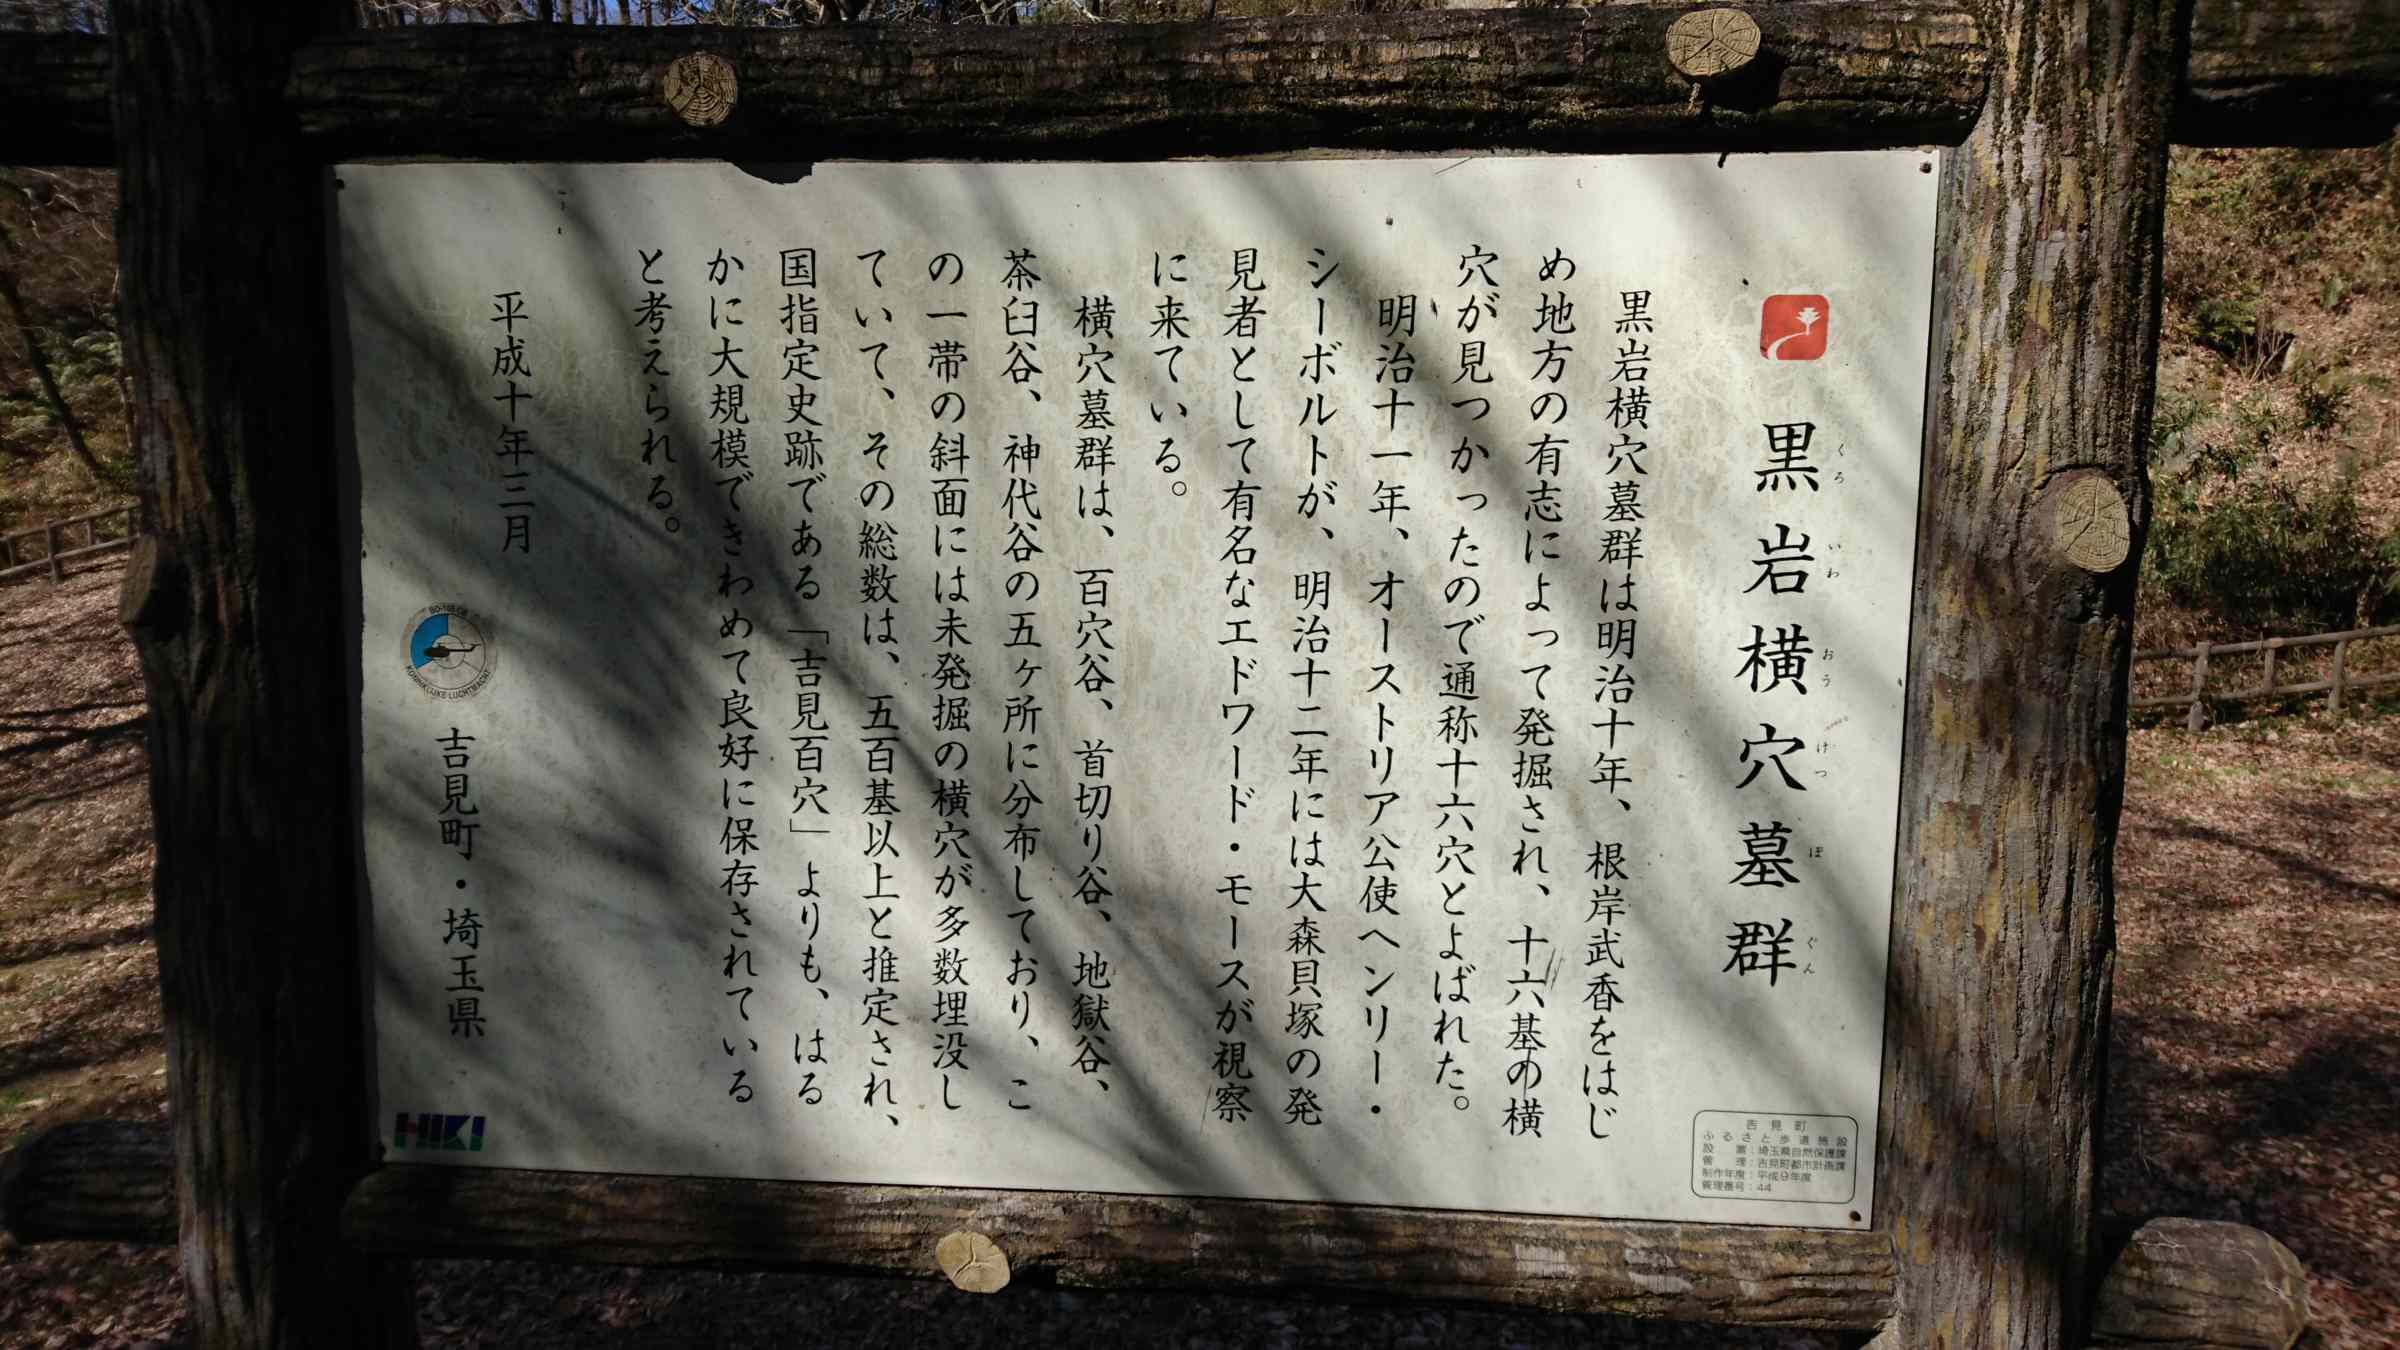 黒岩横穴墓群
くろ いわ おう けつ ぼ ぐん
黒岩横穴墓群は明治十年、根岸武香をはじ
め地方の有志によって発掘され、十六基の横
穴が見つかったので通称十六穴とよばれた。
明治十一年、オーストリア公使ヘンリー・
シーボルトが、明治十二年には大森貝塚の発
見者として有名なエドワード・モースが視察
に来ている。
横穴墓群は、百穴谷、首切り谷、地獄谷、
茶臼谷、神代谷の五ヶ所に分布しており、こ
の一帯の斜面には未発掘の横穴が多数埋没し
ていて、その総数は、五百基以上と推定され、
国指定史跡である「吉見百穴」よりも、はる
かに大規模できわめて良好に保存されている
と考えられる。
平成十年三月
吉見町・埼玉県
BO-105 CB
KONINKLIJKE LUCHTMACHT
HIKI
吉見町
ふるさと歩道施設
設置：埼玉県自然保護課
管理：吉見町都市計画課
制作年度：平成9年度
管理番号：44